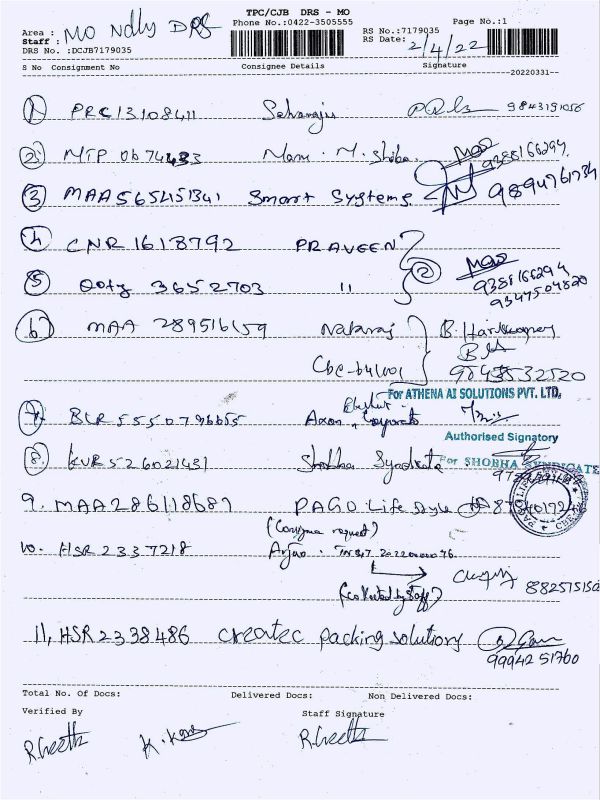 TPC/CJB DRS - MO
Area : MO Ndly DRS Phone No.:0422-3505555 RS No.:7179035 Page No.:1
Staff : RS Date: 2/4/22
DRS No. :DCJB7179035
S No Consignment No Consignee Details Signature
20220331
1 PRC13108411 Selvaraju 9843191056
2. MTP 0674433 Manu. M. Shoba. 9388166294
3 MAA565451341 Smart Systems 9894761734
4 CNR 1618792 PRAVEEN 2
5 Ooty 3652703 11 9388166294
9347504820
6 MAA 289516159 Nataraj B. Harikumar
9043532520
For ATHENA AI SOLUTIONS PVT. LTD.
7. BLR 5550796655 Axon Corporate
Authorised Signatory
8. KVR 526021431 Shobha Syndicate For SHOBHA SYNDICATE
9. MAA286118687 PAGO Life Style
(Consignee request)
10. HSR 2337218 Arjun.
(collected by staff)
11, HSR 2338486 Createc packing solutions
99942 51760
Total No. Of Docs: Delivered Docs: Non Delivered Docs:
Verified By Staff Signature
R.Geetha R.Geetha